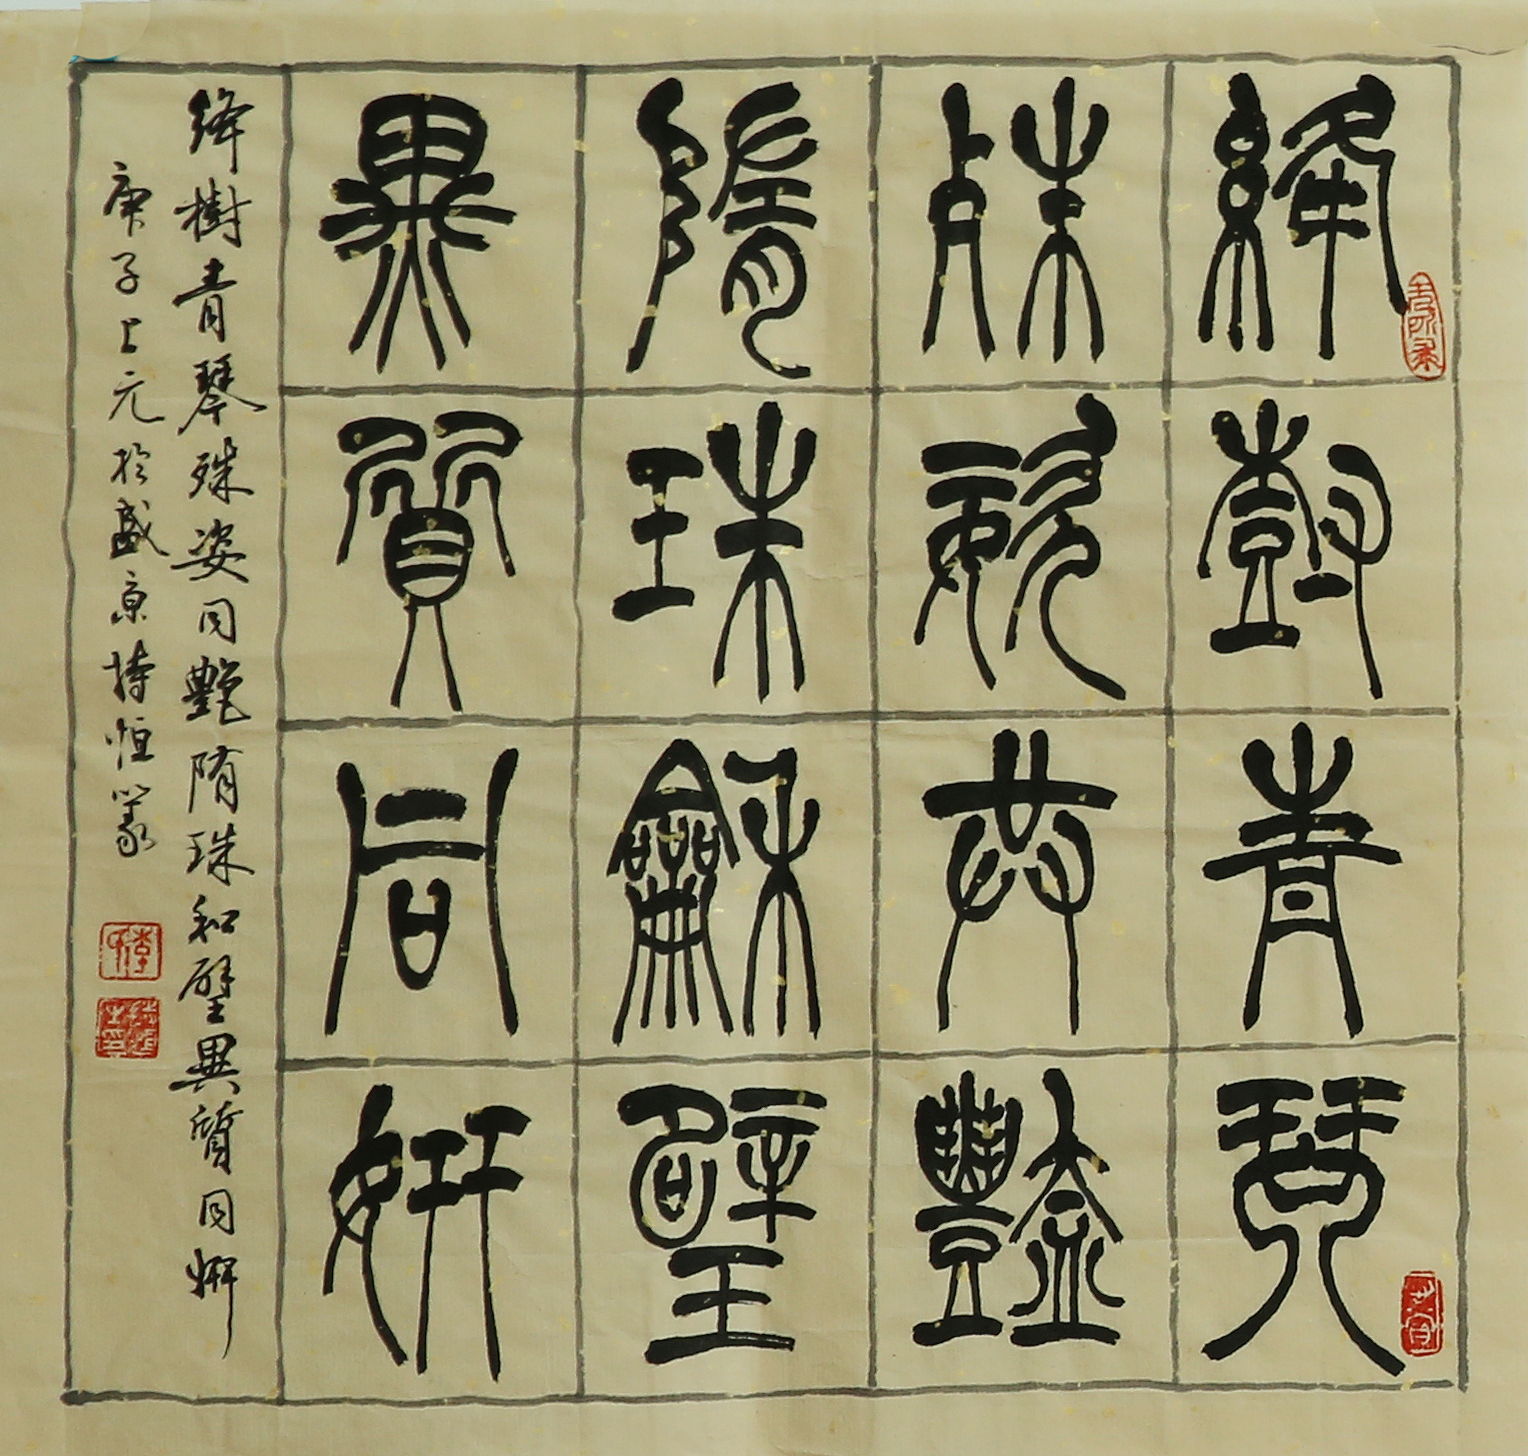 絳樹青琴
殊姿共豔
隋珠龢璧
異質同妍
絳樹青琴殊姿同艷隋珠和璧異質同妍
庚子上元於盛京持恒篆